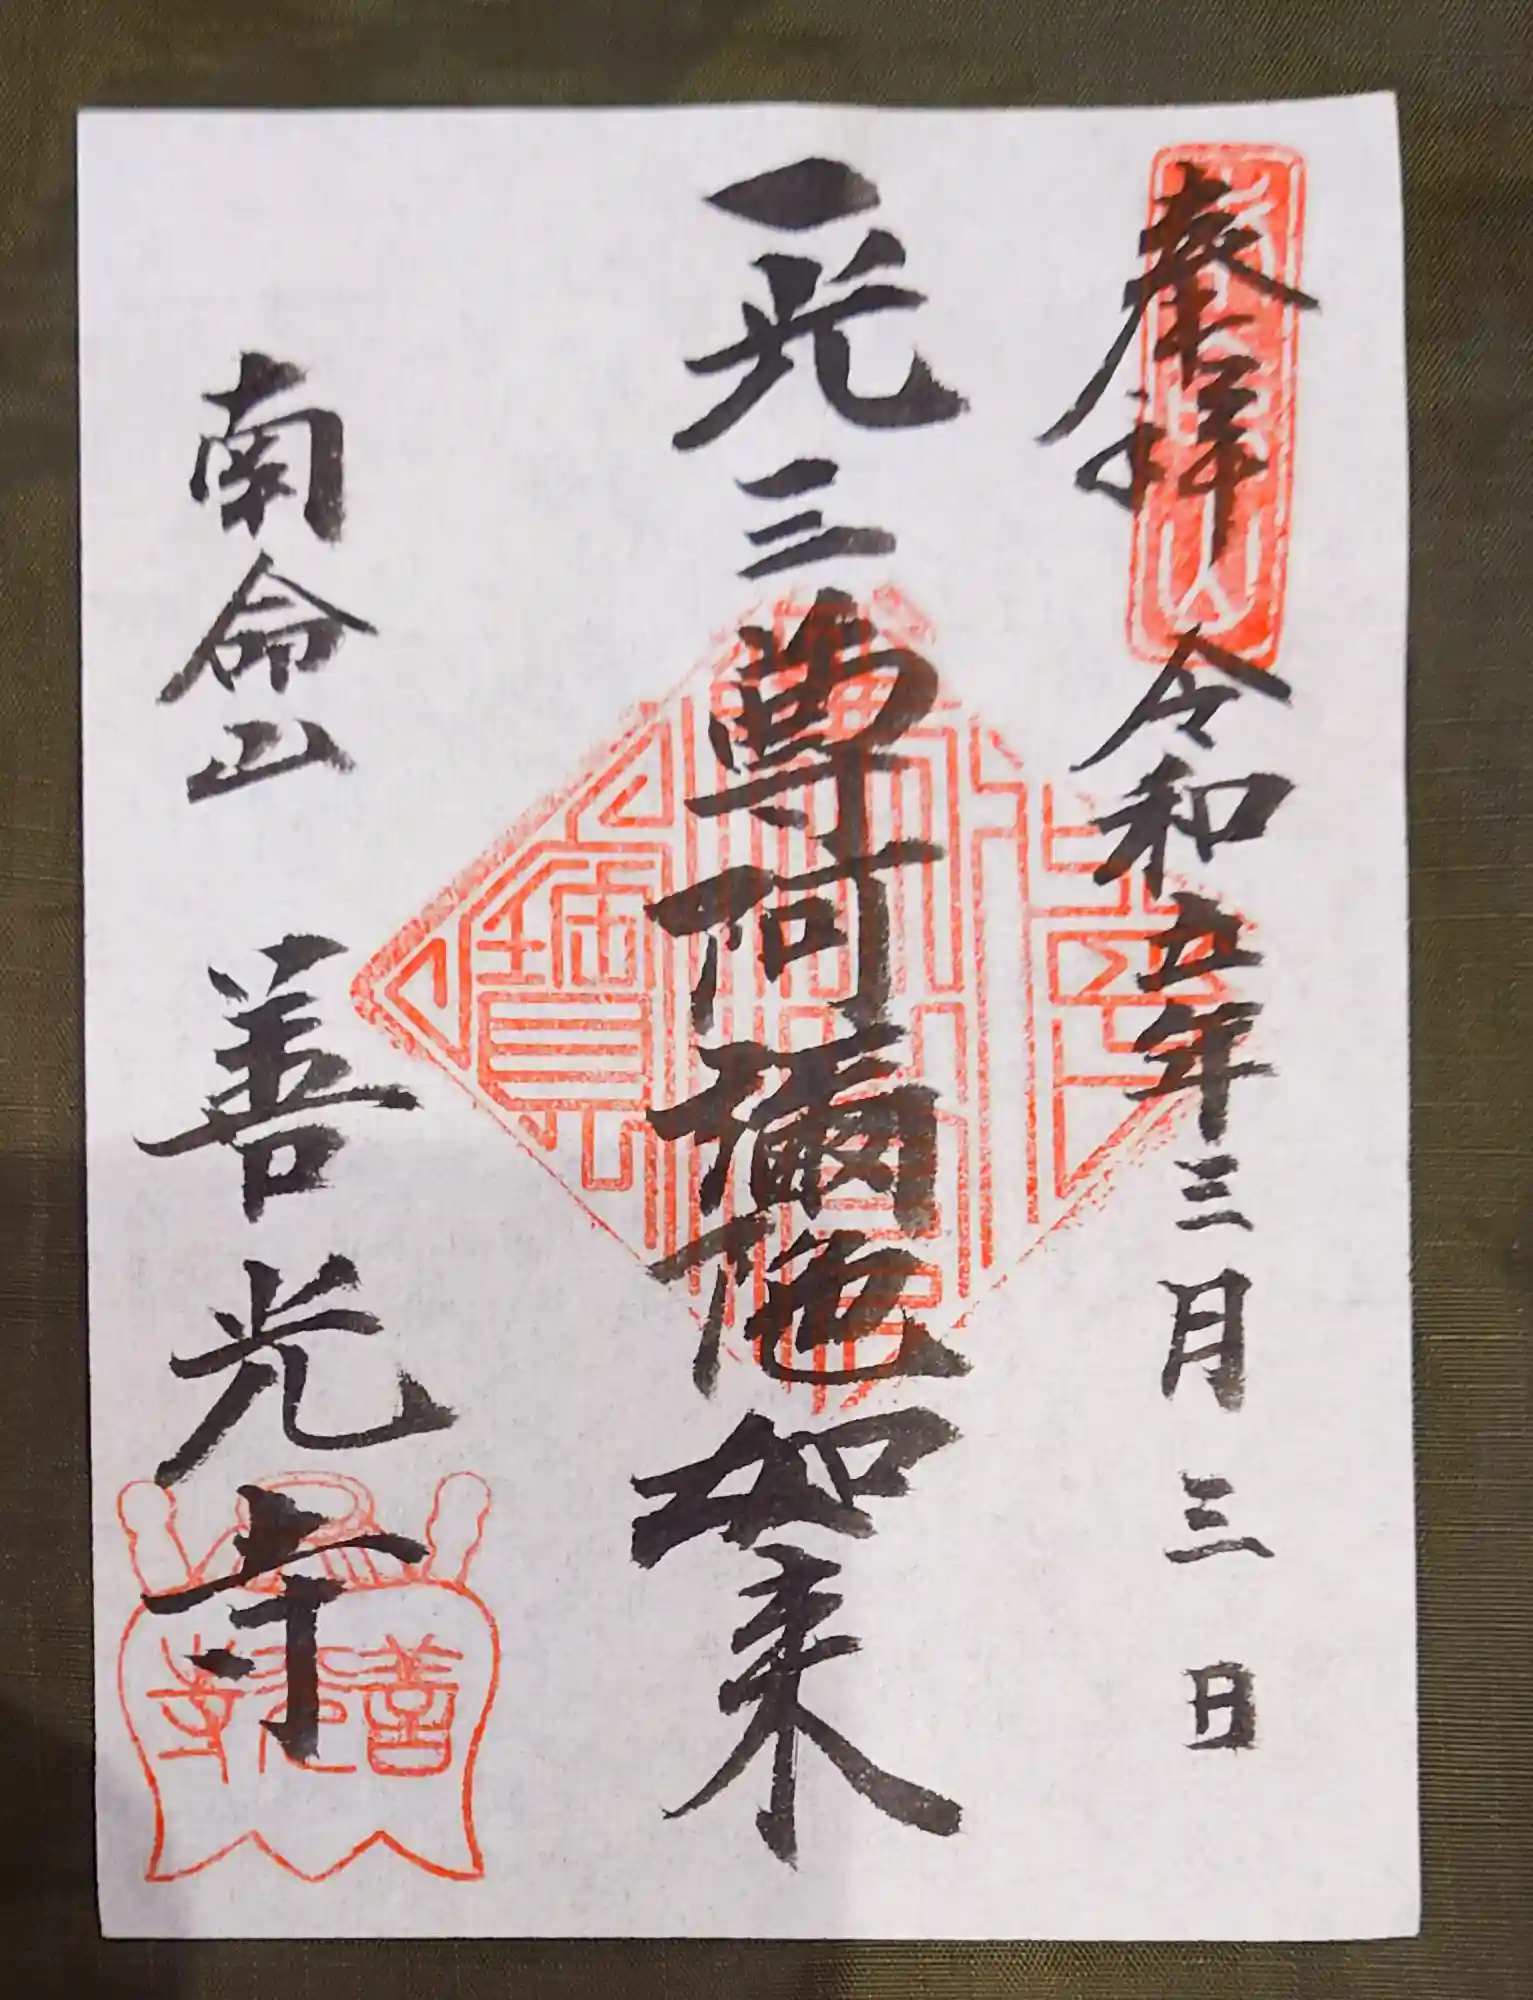 奉拝 令和五年三月三日
一光三尊阿彌陀如来
南命山 善光寺
善光寺